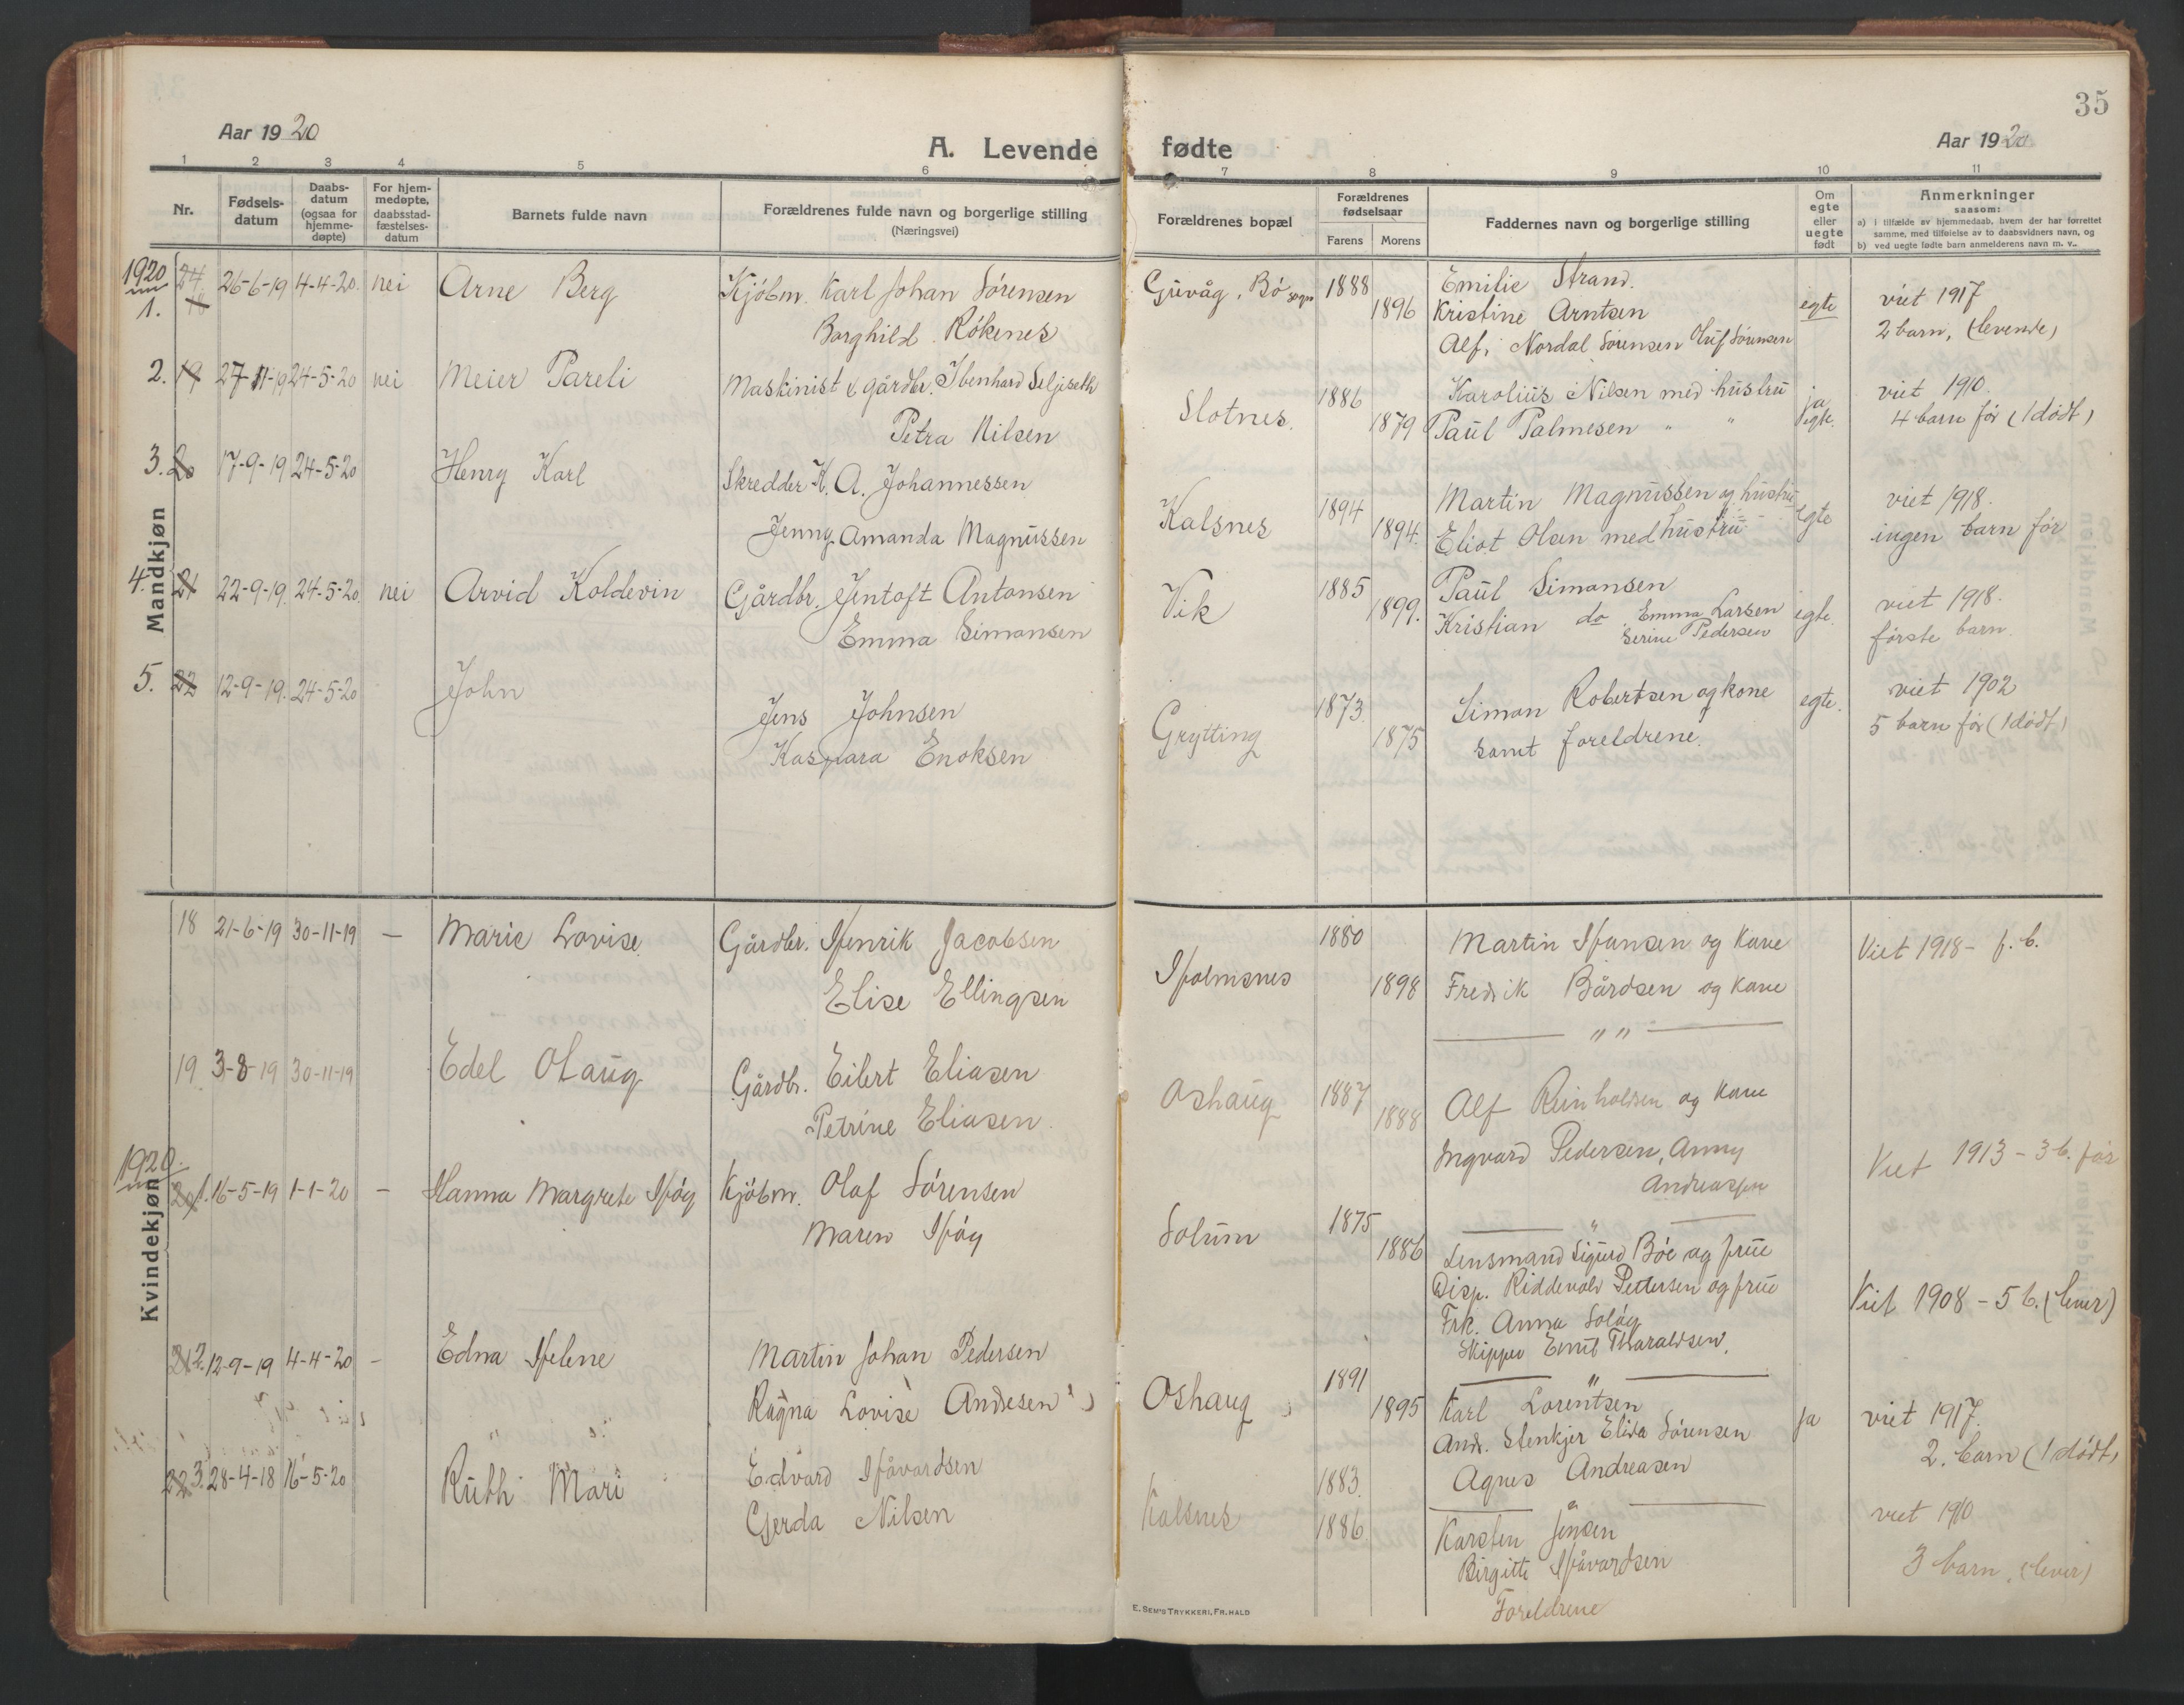 35
Aar 1920
A. Levende fødte
Aar 1920
1 2 3 4 5 6 7 8 9 10 11
Nr.
Fødsels-
datum
Daabs-
datum
(ogsaa for
hjemme-
døpte)
For hjem-
medøpte,
daabsstad-
fæstelses-
datum
Barnets fulde navn
Forældrenes fulde navn og borgerlige stilling
(Næringsvei)
Forældrenes bopæl
Forældrenes
fødselsaar
Farens Morens
Faddernes navn og borgerlige stilling
Om
egte
eller
uegte
født
Anmerkninger
saasom:
a) i tilfælde av hjemmedaab, hvem der har forrettet
samme, med tilføielse av to daabsvidners navn, og
b) ved uegte fødte barn anmelderens navn m. v..
Mandkjøn
1920
1. 18 26-6-19 4-4-20. nei Arne Berg Kjöbm. Karl Johan Sörensen Guvåg, Bö sogn 1888 Emilie Strand.
Borghild Rökenes 1896 Kristine Arntsen egte viet 1917
Alf, Nordal Sörensen Oluf Sörensen 2 barn, (levende)
2. 19 27-11-19 24-5-20 nei Meier Pareli Maskinist & gårdbr. Ibenhard Seljeseth Slotnes. 1886 Karolius Nilsen med hustru ja viet 1910.
Petra Nilsen 1879 Paul Palmesen " " egte. 4 barn för (1 dödt)
3. 20 17-9-19 24-5-20 Henry Karl Skredder K. A. Johannessen Kalsnes 1894 Martin Magnussen og hustru egte viet 1918.
Jenny Amanda Magnussen 1894. Eliot Olsen med hustru ingen barn för
4. 21 22-9-19. 24-5-20 nei Arvid Koldevin Gårdbr. Jentoft Antonsen Vik 1885 Paul Simonsen viet 1918.
Emma Simonsen 1899. Kristian do Emma Larsen egte. förste barn.
Serine Pedersen
5. 22 12-9-19. 24-5-20 John Jens Johnsen Grytting 1873 Simon Robertsen og kone egte. viet 1902
Kaspara Enoksen 1875 samt foreldrene. 5 barn för (1 dödt)
Kvindekjøn
18 21-6-19 30-11-19 — Marie Lovise Gårdbr. Henrik Jacobsen Holmsnes 1880 Martin Hansen og Kone Viet 1918- f. b.
Elise Ellingsen 1898 Fredrik Bårdsen og Kone
" "
19 3-8-19 30-11-19 Edel Olaug Gårdbr. Eilert Eliasen Oshaug 1887 Alf Reinholdsen og Kone
Petrine Eliasen. 1888 Ingvard Pedersen, Anny Viet 1913 - 3 b. för
Andreassen
1920.
20 1. 16-5-19 1-1-20 - Hanna Margrete Höy Kjöbm. Olaf Sörensen Solum 1875 Lensmand Sigurd Böe og frue
Maren Höy 1886 Disp. Riddervold Pettersen og frue Viet 1908 - 5 b. (lever)
Frk. Anna Solöy
Skipper Ernst Tharaldsen.
"
21 2. 12-9-19 4-4-20 - Edna Helene Martin Johan Pedersen Oshaug 1891 Karl Lorentsen
Ragna Lovise Andresen 1895 Andr. Stenkjer Elida Sörensen ja viet 1917.
Agnes Andreasen 2. barn (1 dödt)
22 3. 28-4-18 16-5-20 Ruth Mari Edvard Håvardsen Kalsnes 1883. Karsten Jensen viet 1910
Gerda Nilsen 1886 Birgitte Håvardsen 3 barn. (lever)
Foreldrene
E. SEM'S TRYKKERI, FR.HALD